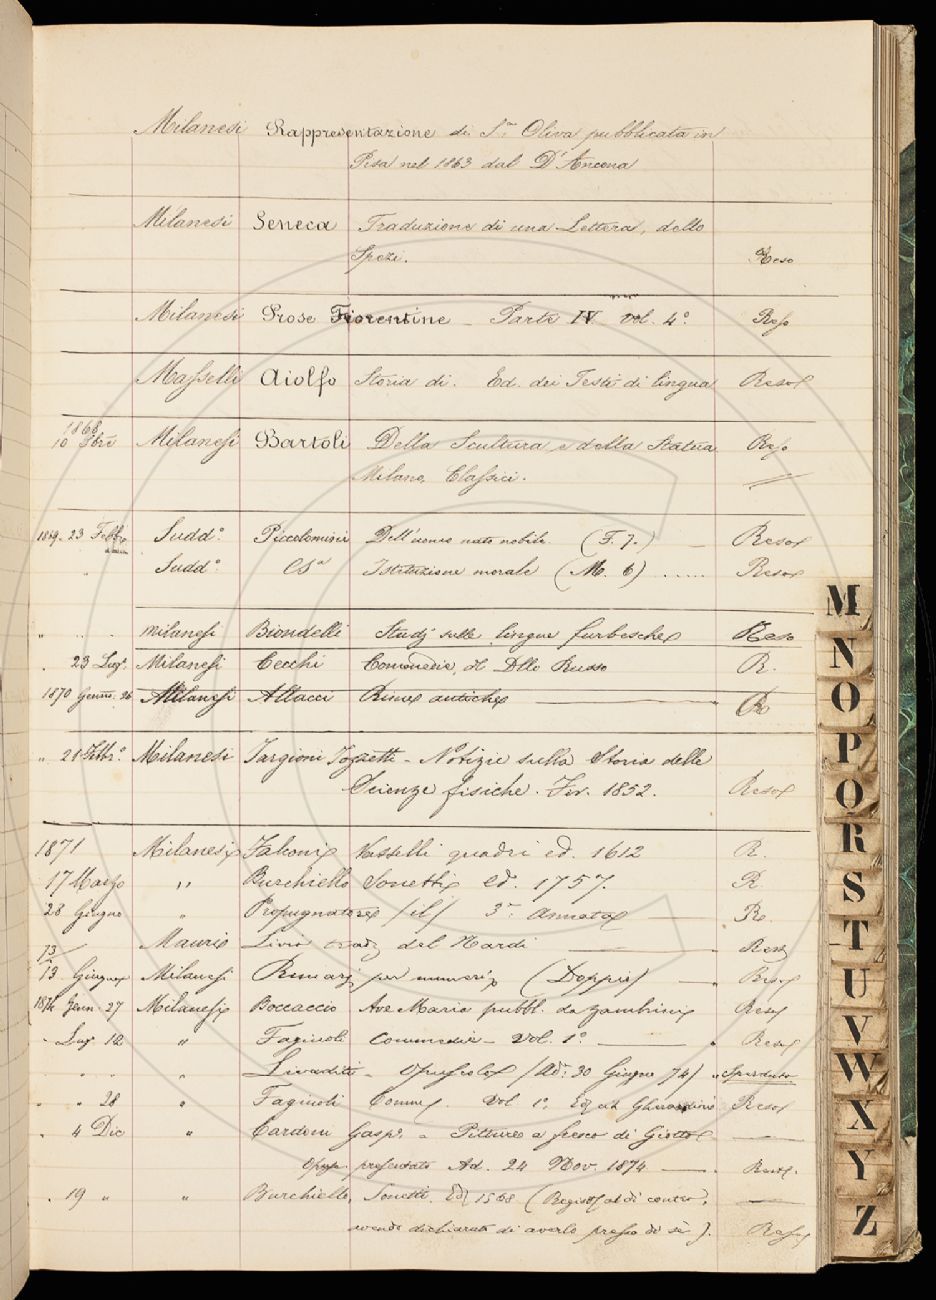 Milanesi Rappresentazione di S.ta Oliva pubblicata in
Pisa nel 1863 dal D'Ancona
Milanesi Seneca Traduzione di una Lettera, dello
Spezi. Reso
Milanesi Prose Fiorentine - Parte IV vol. 4º Reso
Masselli Aiolfo Storia di. Ed. dei Testi di lingua Reso
1868
10 Milanesi Bartoli Della Scultura e della Statua Reso
Milano, Classici.
1869. 23 Febb. Sudd.º Piccolomini Dell'uomo nato nobile (F. 7.) Reso
Sudd.º Istituzione morale (M. 6) ..... Reso
" Milanesi Biondelli Studj sulle lingue furbesche Reso
23 Lug. Milanesi Cecchi Commedie, Russo R.
1870 Genn. 26 Milanesi Allacci Rime antiche R
" 21 Milanesi Targioni Tozzetti - Notizie sulla Storia delle
Scienze fisiche. Fir. 1852. Reso
1871 Milanesi Falconi Vasselli quadri ed. 1612 R.
17 Marzo " Burchiello Sonetti ed. 1757. R.
28 Giugno " Propugnatore /il/ 3.ª Annata Re.
73 Mauri Livio trad. del Nardi Reso
13 Giugno Milanesi per numeri (Doppio) Reso
1874 Genn. 27 Milanesi Boccaccio Ave Maria pubbl. da Zambrini Reso
" Lug. 12 " Fagiuoli Commedie - vol. 1º Reso
" " " - Opuscolo (Ad: 30 Giugno 74)
" " 28 " Fagiuoli Comm. vol. 1º. Reso
" 4 Dic " Cardoni Gasp.º - Pitture a fresco di Giotto
prestato Ad. 24 Nov. 1874 Reso.
" 19 " " Burchiello, Sonetti. Ed. 1568 (Registr. al di contro,
avendo dichiarato di averlo presso di sè). Reso
M
N
O
P
Q
R
S
T
U
V
W
X
Y
Z